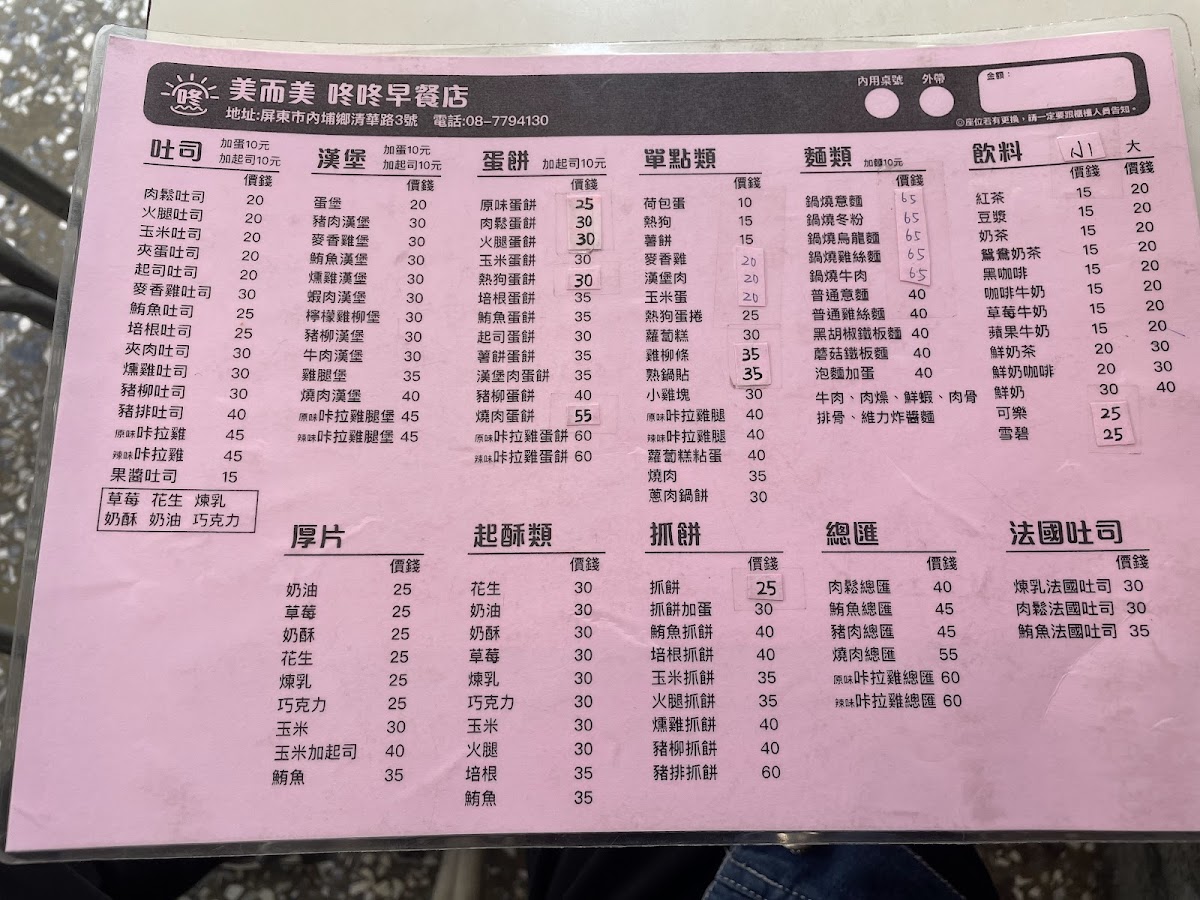 咚 美而美 咚咚早餐店
地址:屏東市內埔鄉清華路3號 電話:08-7794130
內用桌號 外帶 金額:
◎座位若有更換,請一定要跟櫃檯人員告知。
吐司 加蛋10元 加起司10元
價錢
肉鬆吐司 20
火腿吐司 20
玉米吐司 20
夾蛋吐司 20
起司吐司 20
麥香雞吐司 30
鮪魚吐司 25
培根吐司 25
夾肉吐司 30
燻雞吐司 30
豬柳吐司 30
豬排吐司 40
原味咔拉雞 45
辣味咔拉雞 45
果醬吐司 15
草莓 花生 煉乳
奶酥 奶油 巧克力
漢堡 加蛋10元 加起司10元
價錢
蛋堡 20
豬肉漢堡 30
麥香雞堡 30
鮪魚漢堡 30
燻雞漢堡 30
蝦肉漢堡 30
檸檬雞柳堡 30
豬柳漢堡 30
牛肉漢堡 30
雞腿堡 35
燒肉漢堡 40
原味咔拉雞腿堡 45
辣味咔拉雞腿堡 45
蛋餅 加起司10元
價錢
原味蛋餅 25
肉鬆蛋餅 30
火腿蛋餅 30
玉米蛋餅 30
熱狗蛋餅 30
培根蛋餅 35
鮪魚蛋餅 35
起司蛋餅 30
薯餅蛋餅 35
漢堡肉蛋餅 35
豬柳蛋餅 40
燒肉蛋餅 55
原味咔拉雞蛋餅 60
辣味咔拉雞蛋餅 60
單點類
價錢
荷包蛋 10
熱狗 15
薯餅 15
麥香雞 20
漢堡肉 20
玉米蛋 20
熱狗蛋捲 25
蘿蔔糕 30
雞柳條 35
熱鍋貼 35
小雞塊 30
原味咔拉雞腿 40
辣味咔拉雞腿 40
蘿蔔糕粘蛋 40
燒肉 35
蔥肉鍋餅 30
麵類 加麵10元
價錢
鍋燒意麵 65
鍋燒冬粉 65
鍋燒烏龍麵 65
鍋燒雞絲麵 65
鍋燒牛肉 65
普通意麵 40
普通雞絲麵 40
黑胡椒鐵板麵 40
蘑菇鐵板麵 40
泡麵加蛋 40
牛肉、肉燥、鮮蝦、肉骨
排骨、維力炸醬麵
飲料 小 大
價錢
紅茶 15 20
豆漿 15 20
奶茶 15 20
鴛鴦奶茶 15 20
黑咖啡 15 20
咖啡牛奶 15 20
草莓牛奶 15 20
蘋果牛奶 15 20
鮮奶茶 20 30
鮮奶咖啡 20 30
鮮奶 30 40
可樂 25
雪碧 25
厚片
價錢
奶油 25
草莓 25
奶酥 25
花生 25
煉乳 25
巧克力 25
玉米 30
玉米加起司 40
鮪魚 35
起酥類
價錢
花生 30
奶油 30
奶酥 30
草莓 30
煉乳 30
巧克力 30
玉米 30
火腿 30
培根 35
鮪魚 35
抓餅
價錢
抓餅 25
抓餅加蛋 30
鮪魚抓餅 40
培根抓餅 40
玉米抓餅 35
火腿抓餅 35
燻雞抓餅 40
豬柳抓餅 40
豬排抓餅 60
總匯
價錢
肉鬆總匯 40
鮪魚總匯 45
豬肉總匯 45
燒肉總匯 55
原味咔拉雞總匯 60
辣味咔拉雞總匯 60
法國吐司
價錢
煉乳法國吐司 30
肉鬆法國吐司 30
鮪魚法國吐司 35